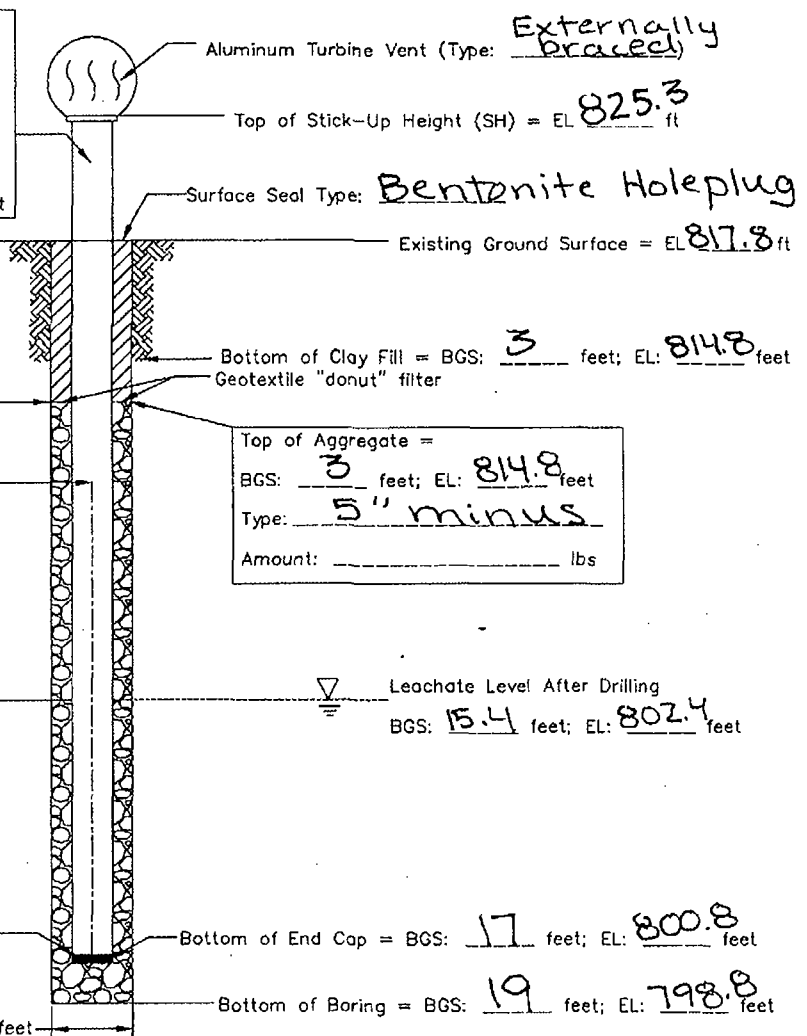 Aluminum Turbine Vent (Type: Externally braced)
Top of Stick-Up Height (SH) = EL 825.3 ft
t
Surface Seal Type: Bentonite Holeplug
Existing Ground Surface = EL 817.8 ft
Bottom of Clay Fill = BGS: 3 feet; EL: 814.8 feet
Geotextile "donut" filter
Top of Aggregate =
BGS: 3 feet; EL: 814.8 feet
Type: 5" minus
Amount: ______ lbs
Leachate Level After Drilling
BGS: 15.4 feet; EL: 802.4 feet
Bottom of End Cap = BGS: 17 feet; EL: 800.8 feet
Bottom of Boring = BGS: 19 feet; EL: 798.8 feet
feet